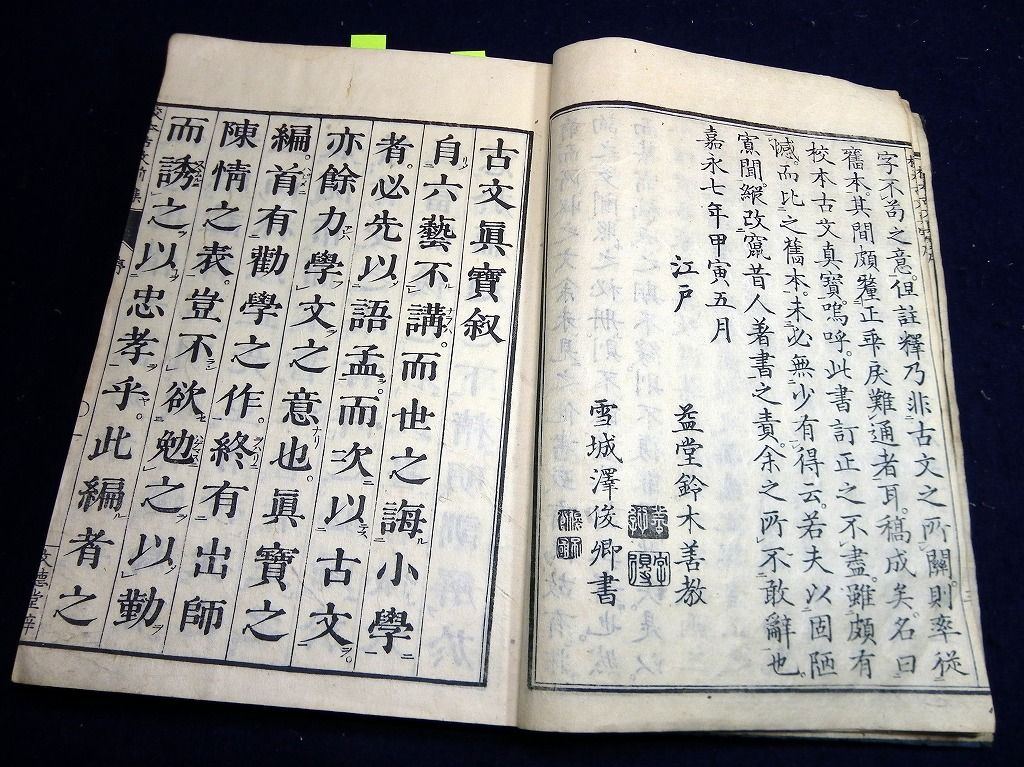 字不苟之意。但註釋乃非古文之所關。則率從
舊本。其間頗釐正乖戾難通者耳。稿成矣。名曰
校本古文真寶。嗚呼。此書訂正之不盡。雖頗有
憾。而比之舊本。未必無少有得云。若夫以固陋
寡聞。縱改竄昔人著書之責。余之所不敢辭也。
嘉永七年甲寅五月
江戸 益堂鈴木善教
雪城澤俊卿書
古文眞寶叙
自六藝不講。而世之誨小學
者。必先以語孟。而次以古文。
亦餘力學文之意也。眞寶之
編。首有勸學之作。終有出師
陳情之表。豈不欲勉之以勤
而誘之以忠孝乎。此編者之